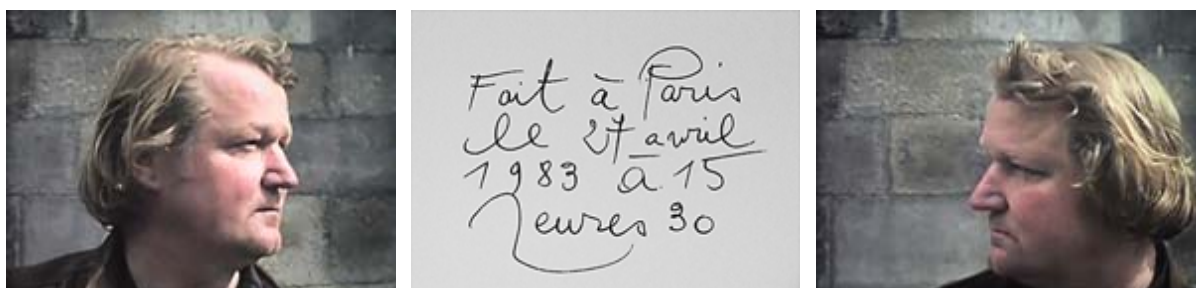 Fait à Paris
le 27 avril
1983 à 15
heures 30